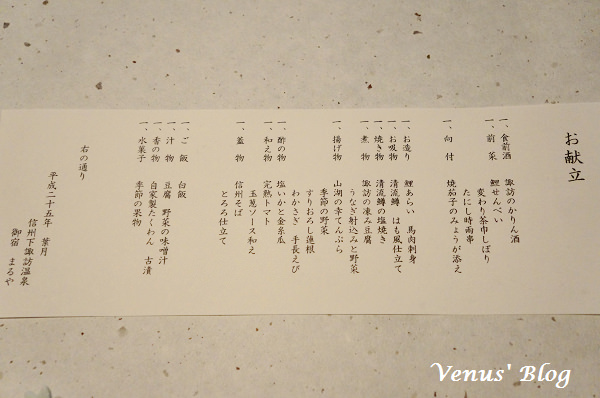 お献立
一、食前酒 諏訪のかりん酒
一、前菜 鯉せんべい
変わり茶巾しぼり
たにし時雨串
一、向付 焼茄子のみょうが添え
一、お造り 鯉あらい 馬肉刺身
一、お吸物 清流鱒 はも風仕立て
一、焼き物 清流鱒の塩焼き
一、煮物 うなぎ射込みと野菜
諏訪の凍み豆腐
一、揚げ物 山湖の幸てんぷら
季節の野菜
すりおろし蓮根
わかさぎ 手長えび
一、酢の物 塩いかと金糸瓜
一、和え物 完熟トマト
玉葱ソース和え
一、蓋物 信州そば
とろろ仕立て
一、ご飯 白飯
一、汁物 豆腐 野菜の味噌汁
一、香の物 自家製たくわん 古漬
一、水菓子 季節の果物
右の通り
平成二十五年 葉月
信州下諏訪温泉
御宿 まるや
Venus' Blog